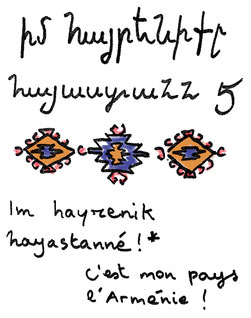 իմ հայրենիքը
հայաստանն է
Im hayrenik
hayastanné !*
c'est mon pays
l'Arménie !